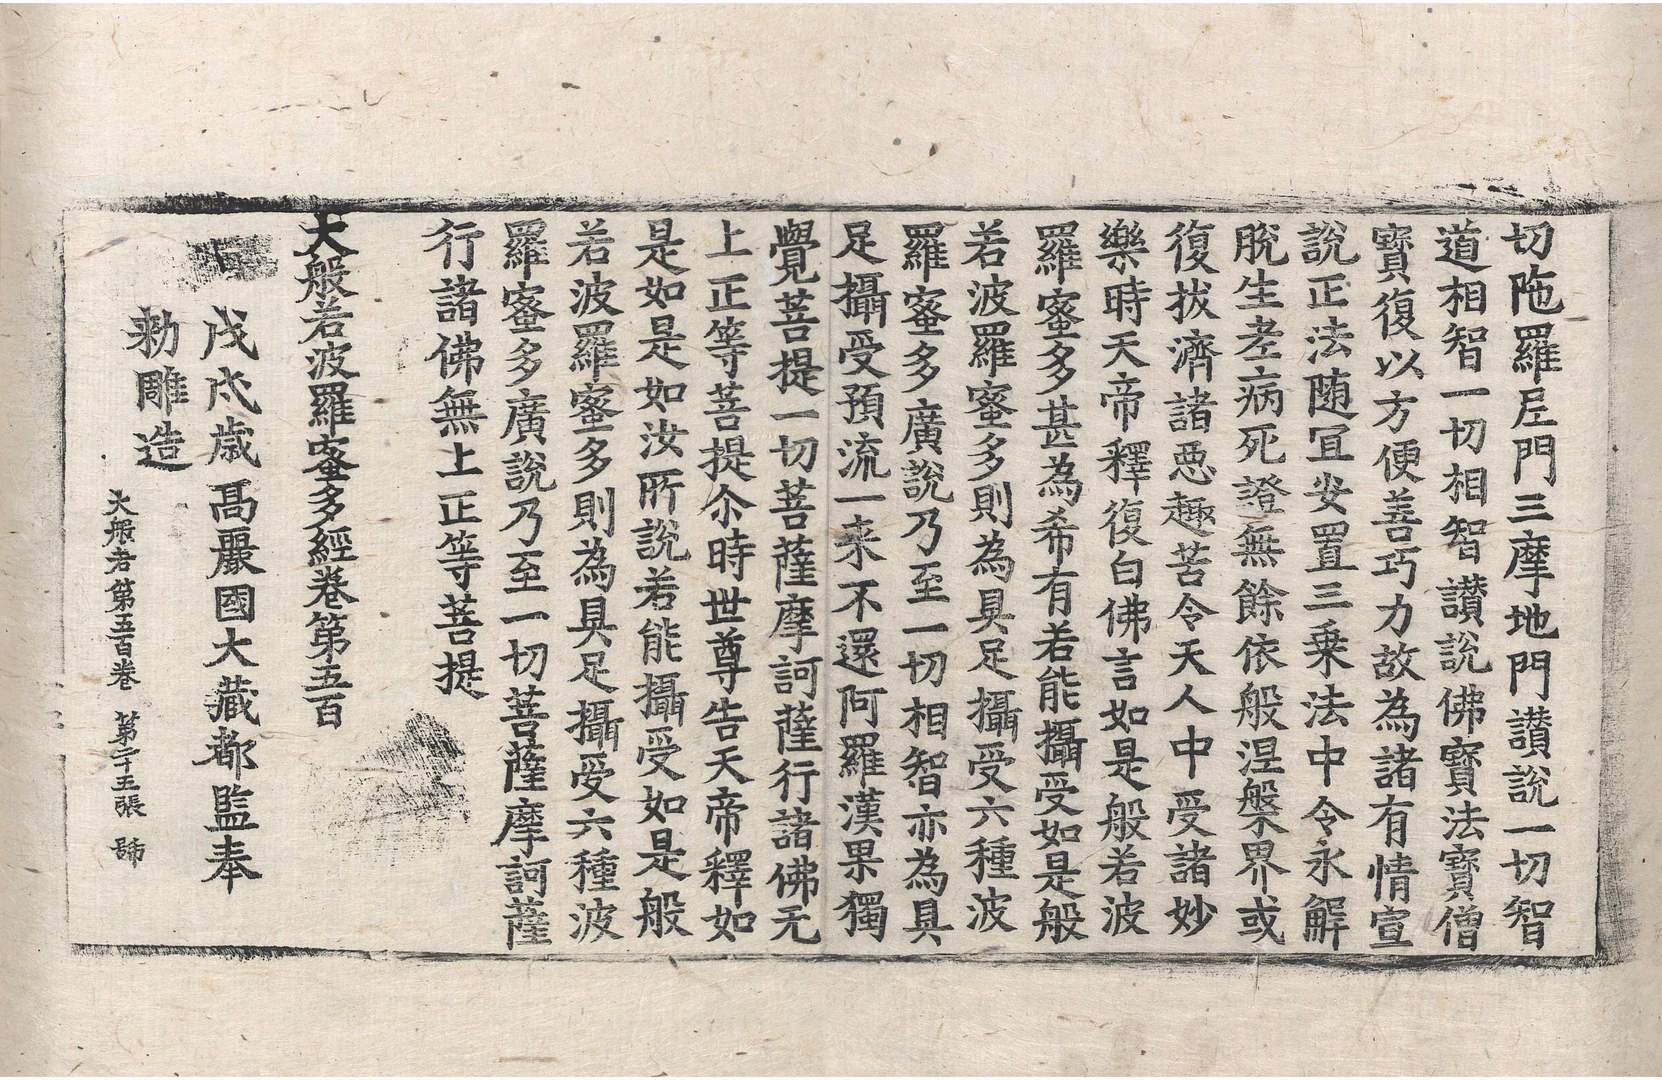 切陁羅尼門三摩地門讚說一切智
道相智一切相智讚說佛寶法寶僧
寶復以方便善巧力故為諸有情宣
說正法随冝安置三乗法中令永解
脫生老病死證無餘依般涅槃界或
復拔濟諸惡趣苦令天人中受諸妙
樂時天帝釋復白佛言如是般若波
羅蜜多甚為希有若能攝受如是般
若波羅蜜多則為具足攝受六種波
羅蜜多廣說乃至一切相智亦為具
足攝受預流一来不還阿羅漢果獨
覺菩提一切菩薩摩訶薩行諸佛无
上正等菩提尒時世尊告天帝釋如
是如是如汝所說若能攝受如是般
若波羅蜜多則為具足攝受六種波
羅蜜多廣說乃至一切菩薩摩訶薩
行諸佛無上正等菩提
大般若波羅蜜多經卷第五百
戊戌歳高麗國大藏都監奉
勑雕造
大般若第五百卷 第二十五張 號